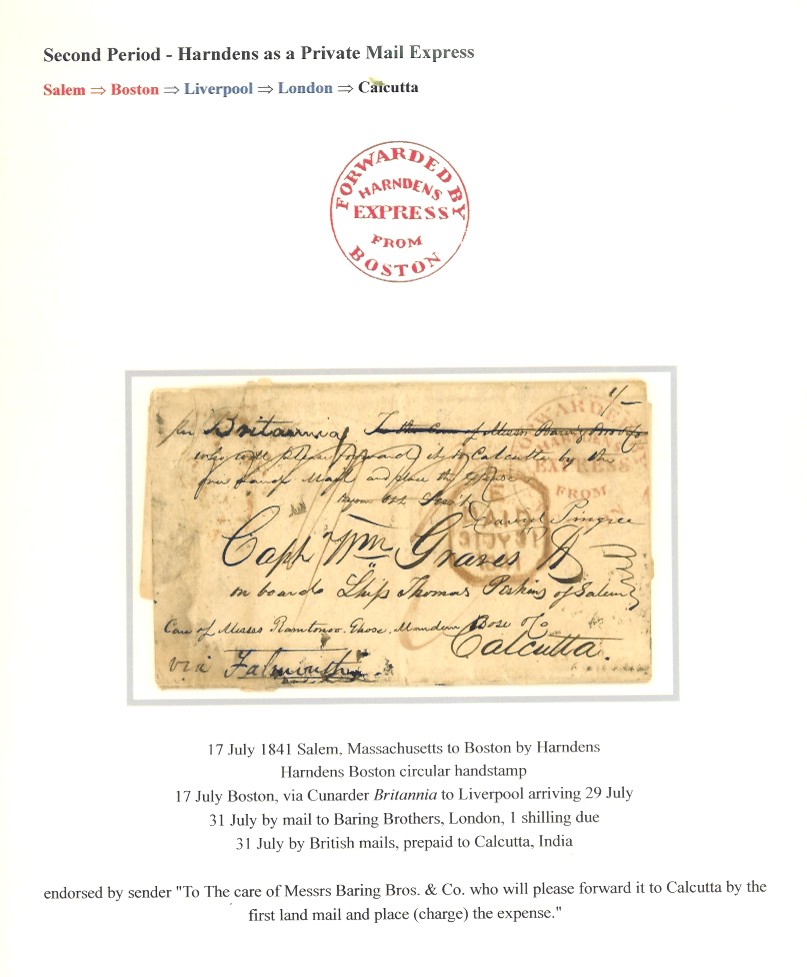 Second Period - Harndens as a Private Mail Express
Salem ⇒ Boston ⇒ Liverpool ⇒ London ⇒ Calcutta
FORWARDED BY
HARNDENS
EXPRESS
FROM
BOSTON
1/-
per Britannia To the Care of Messrs Baring Bros & Co
who will please forward it to Calcutta by the
land Mail and place the expense
FORWARDED
EXPRESS
FROM
PAID
31 JY 31
David Pingree
Capt Wm Graves
on board Ship Thomas Perkins of Salem
Care of Messrs Ramtonoo Ghose Bose & Co
Calcutta.
via Falmouth
17 July 1841 Salem, Massachusetts to Boston by Harndens
Harndens Boston circular handstamp
17 July Boston, via Cunarder Britannia to Liverpool arriving 29 July
31 July by mail to Baring Brothers, London, 1 shilling due
31 July by British mails, prepaid to Calcutta, India
endorsed by sender "To The care of Messrs Baring Bros. & Co. who will please forward it to Calcutta by the
first land mail and place (charge) the expense."